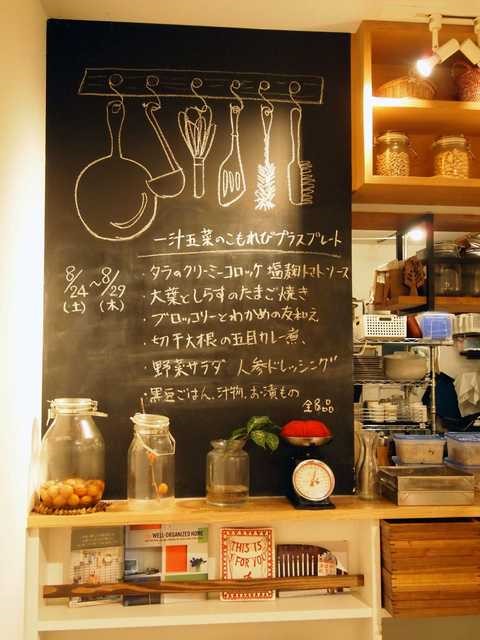 一汁五菜のこもれびプラスプレート
8/24 ~ 8/29
(土) (木)
・タラのクリーミーコロッケ 塩麹トマトソース
・大葉としらすのたまご焼き
・ブロッコリーとわかめの友和え
・切干大根の五目カレー煮、
・野菜サラダ 人参ドレッシング
・黒豆ごはん、汁物、お漬もの
全8品
WELL-ORGANIZED HOME
THIS IS
FOR YOU